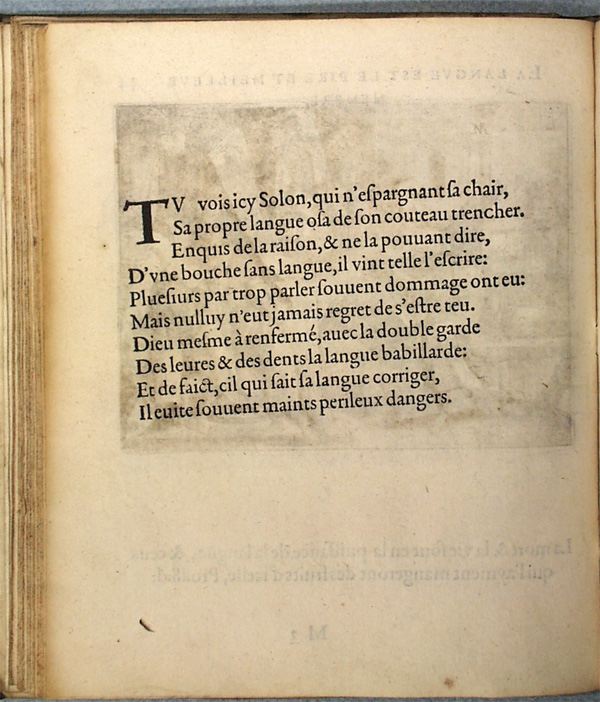 TV vois icy Solon, qui n'eſpargnant ſa chair,
Sa propre langue oſa de ſon couteau trencher.
Enquis de la raiſon, & ne la pouuant dire,
D'vne bouche ſans langue, il vint telle l'eſcrire:
Plueſiurs par trop parler ſouuent dommage ont eu:
Mais nulluy n'eut jamais regret de s'eſtre teu.
Dieu meſme à renfermé, auec la double garde
Des leures & des dents la langue babillarde:
Et de faict, cil qui ſait ſa langue corriger,
Il euite ſouuent maints perileux dangers.